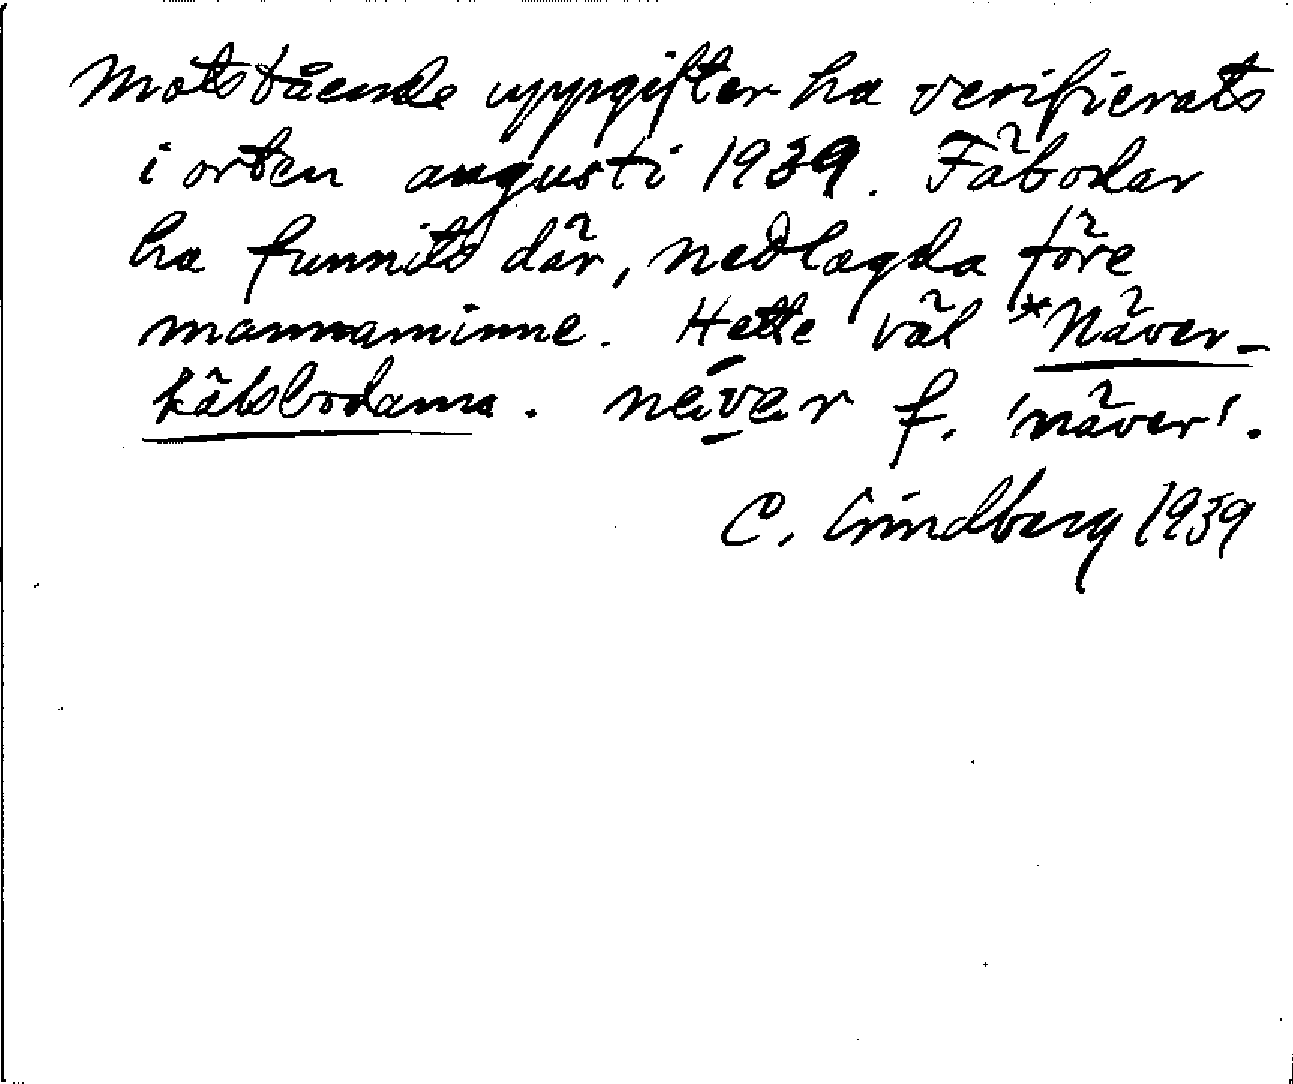 Motstående uppgifter ha verifierats
i orten augusti 1939. Fäbodar
ha funnits där, nedlagda före
mannaminne. Hette väl *Näver-
kälsbodarna. néver f. 'näver'.
C. Lindberg 1939